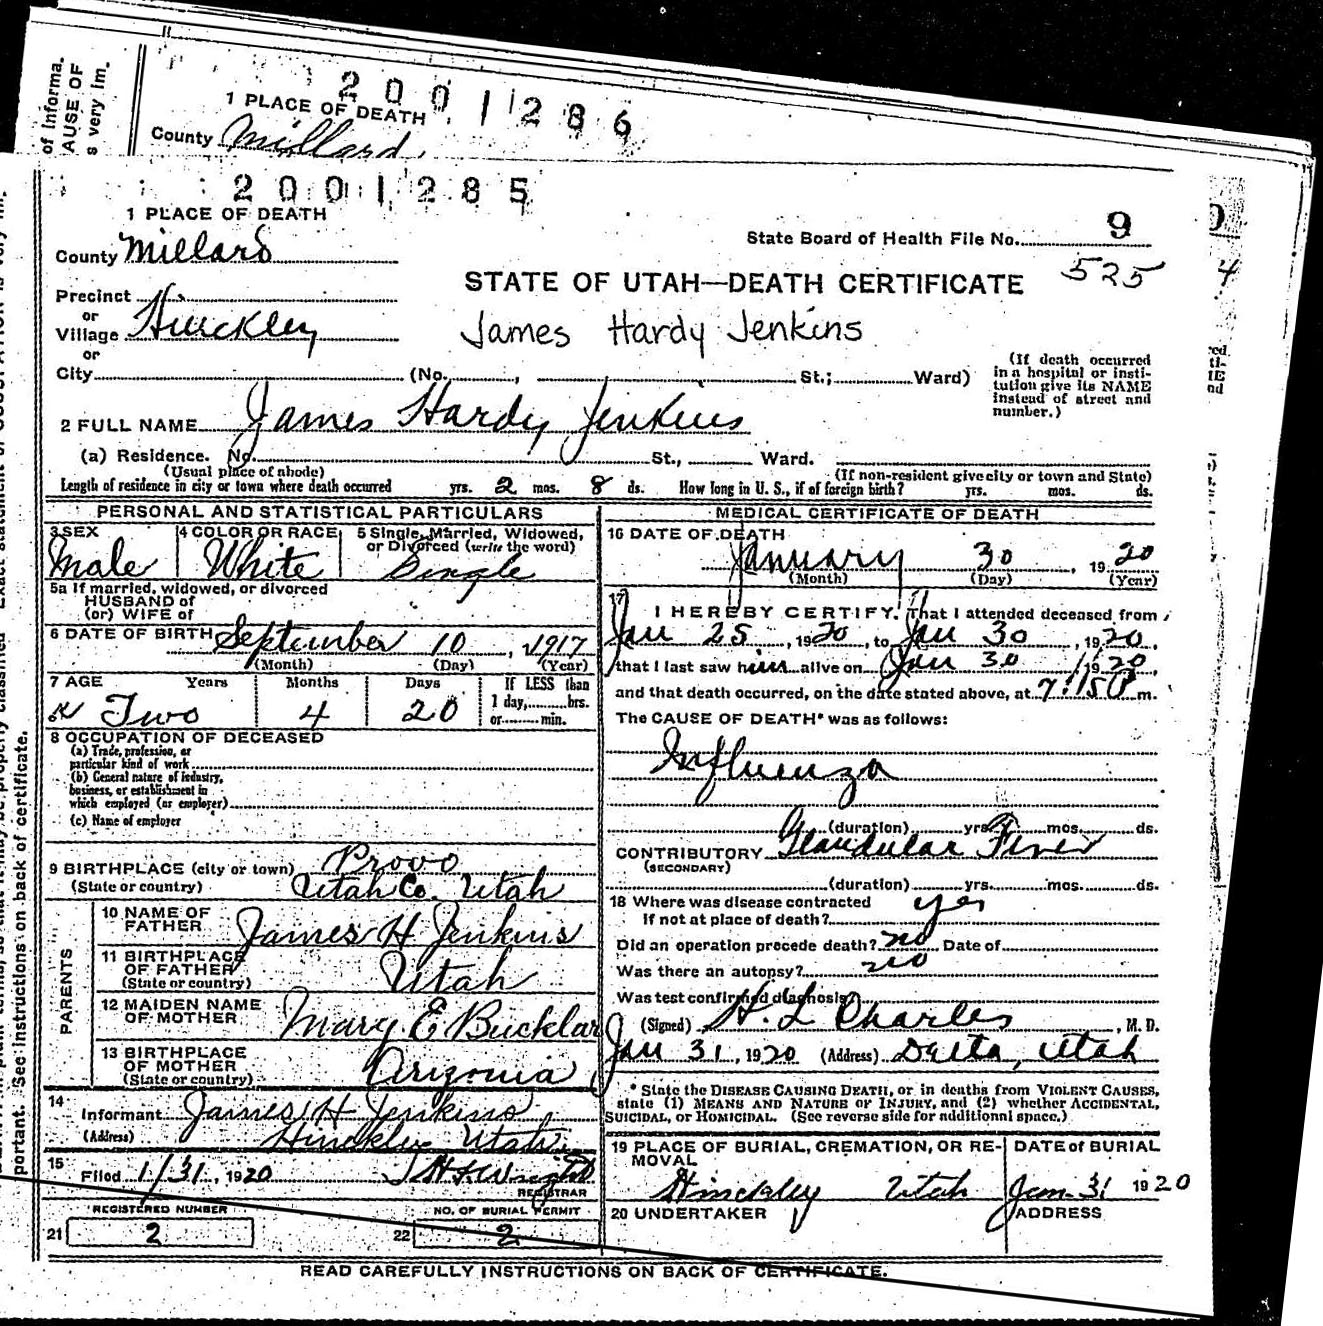 of Informa.
AUSE OF
s very im.
2001286
1 PLACE OF DEATH
County Millard
2001285
1 PLACE OF DEATH
County Millard
State Board of Health File No. 9
525
STATE OF UTAH—DEATH CERTIFICATE
Precinct
or
Village Hinckley
James Hardy Jenkins
or
City (No. , St.; Ward)
(If death occurred
in a hospital or insti-
tution give its NAME
instead of street and
number.)
2 FULL NAME James Hardy Jenkins
(a) Residence. No. St., Ward.
(Usual place of abode) (If non-resident give city or town and State)
Length of residence in city or town where death occurred yrs. 2 mos. 8 ds. How long in U. S., if of foreign birth? yrs. mos. ds.
PERSONAL AND STATISTICAL PARTICULARS
3 SEX
Male
4 COLOR OR RACE
White
5 Single, Married, Widowed,
or Divorced (write the word)
Single
5a If married, widowed, or divorced
HUSBAND of
(or) WIFE of
6 DATE OF BIRTH September 10, 1917
(Month) (Day) (Year)
7 AGE Years Months Days If LESS than
1 day, hrs.
or min.
Two 4 20
8 OCCUPATION OF DECEASED
(a) Trade, profession, or
particular kind of work
(b) General nature of industry,
business, or establishment in
which employed (or employer)
(c) Name of employer
9 BIRTHPLACE (city or town) Provo
(State or country) Utah Co. Utah
PARENTS
10 NAME OF
FATHER James H Jenkins
11 BIRTHPLACE
OF FATHER
(State or country) Utah
12 MAIDEN NAME
OF MOTHER Mary E Bucklar
13 BIRTHPLACE
OF MOTHER
(State or country) Arizonia
14
Informant James H Jenkins
(Address) Hinckley Utah
15
Filed 1/31, 1920 Wright
REGISTRAR
REGISTERED NUMBER
21 2
NO. OF BURIAL PERMIT
22 2
MEDICAL CERTIFICATE OF DEATH
16 DATE OF DEATH
January 30, 1920
(Month) (Day) (Year)
17
I HEREBY CERTIFY, That I attended deceased from
Jan 25, 1920, to Jan 30, 1920,
that I last saw him alive on Jan 30, 1920
and that death occurred, on the date stated above, at 7:15 P m.
The CAUSE OF DEATH* was as follows:
Influenza
(duration) yrs. mos. ds.
CONTRIBUTORY Glandular Fever
(SECONDARY)
(duration) yrs. mos. ds.
18 Where was disease contracted
if not at place of death? yes
Did an operation precede death? no Date of
Was there an autopsy? no
Was test confirmed diagnosis?
(Signed) H. L Charles, M. D.
Jan 31, 1920 (Address) Delta, Utah
* State the DISEASE CAUSING DEATH, or in deaths from VIOLENT CAUSES,
state (1) MEANS AND NATURE OF INJURY, and (2) whether ACCIDENTAL,
SUICIDAL, or HOMICIDAL. (See reverse side for additional space.)
19 PLACE OF BURIAL, CREMATION, OR RE-
MOVAL
Hinckley Utah
DATE of BURIAL
Jan. 31 1920
20 UNDERTAKER
ADDRESS
READ CAREFULLY INSTRUCTIONS ON BACK OF CERTIFICATE.
portant. See instructions on back of certificate.